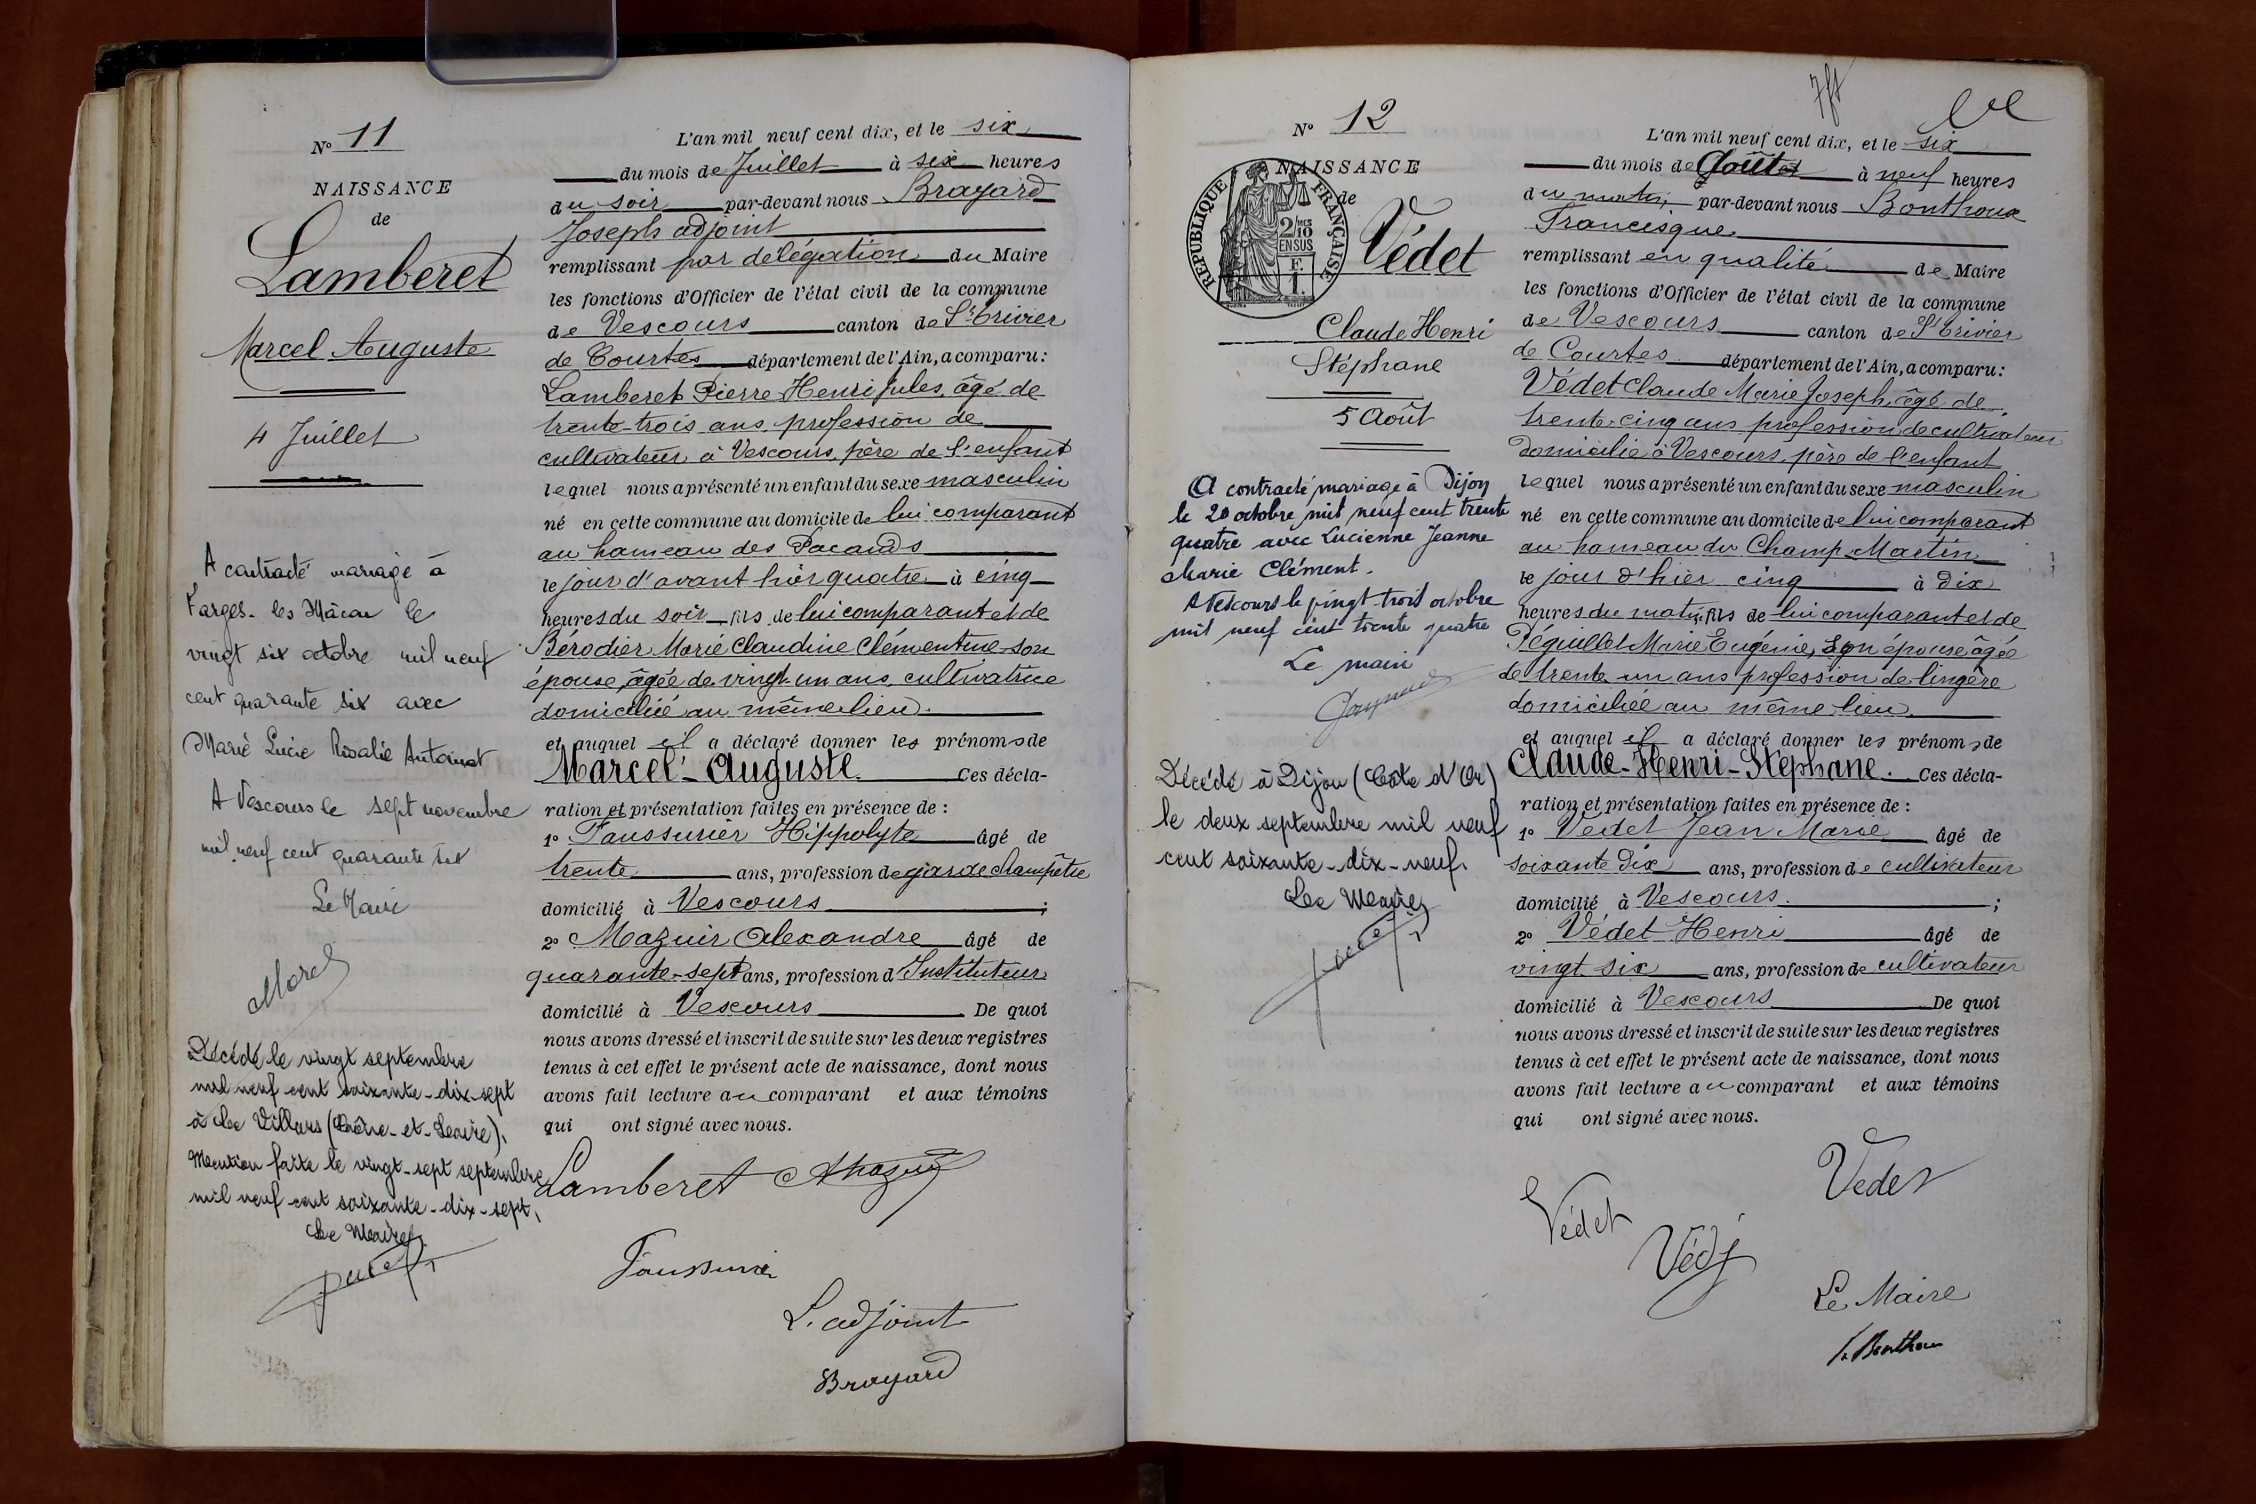 N° 11
NAISSANCE
de
Lamberet
Marcel Auguste
4 Juillet
A contracté mariage à
Farges-les Mâcon le
vingt six octobre mil neuf
cent quarante six avec
Marie Lucie Rosalie Antoinat
A Vescours le sept novembre
mil neuf cent quarante six
Le Maire
Morel
Décédé le vingt septembre
mil neuf cent soixante-dix-sept
à Le Villars (Saône-et-Loire).
Mention faite le vingt-sept septembre
mil neuf cent soixante-dix-sept.
Le Maire
L'an mil neuf cent dix, et le six
du mois de Juillet à six heures
du soir par-devant nous Brayard
Joseph adjoint
remplissant par délégation du Maire
les fonctions d'Officier de l'état civil de la commune
de Vescours canton de St Trivier
de Courtes département de l'Ain, a comparu:
Lamberet Pierre Henri Jules, âgé de
trente-trois ans profession de
cultivateur à Vescours, père de l'enfant
lequel nous a présenté un enfant du sexe masculin
né en cette commune au domicile de lui comparant
au hameau des Pacauds
le jour d'avant hier quatre à cinq
heures du soir fils de lui comparant et de
Bérodier Marie Claudine Clémentine son
épouse, âgée de vingt-un ans, cultivatrice
domiciliée au même lieu.
et auquel il a déclaré donner les prénoms de
Marcel-Auguste. Ces décla-
ration et présentation faites en présence de :
1° Faussurier Hippolyte âgé de
trente ans, profession de garde champêtre
domicilié à Vescours ;
2° Mazuir Alexandre âgé de
quarante-sept ans, profession d'Instituteur
domicilié à Vescours De quoi
nous avons dressé et inscrit de suite sur les deux registres
tenus à cet effet le présent acte de naissance, dont nous
avons fait lecture au comparant et aux témoins
qui ont signé avec nous.
Lamberet AMazuir
Faussurier
L'adjoint
Brayard
N° 12
NAISSANCE
de
RÉPUBLIQUE FRANÇAISE
2/10
EN SUS
F.
1.
Védet
Claude Henri
Stéphane
5 Août
A contracté mariage à Dijon
le 20 octobre mil neuf cent trente
quatre avec Lucienne Jeanne
Marie Clément.
A Vescours le vingt-trois octobre
mil neuf cent trente quatre
Le maire
Décédé à Dijon (Côte d'Or)
le deux septembre mil neuf
cent soixante-dix-neuf.
Le Maire
L'an mil neuf cent dix, et le six
du mois de Août à neuf heures
du matin par-devant nous Bonthoux
Francisque
remplissant en qualité de Maire
les fonctions d'Officier de l'état civil de la commune
de Vescours canton de St Trivier
de Courtes département de l'Ain, a comparu:
Védet Claude Marie Joseph, âgé de
trente-cinq ans profession de cultivateur
domicilié à Vescours, père de l'enfant
lequel nous a présenté un enfant du sexe masculin
né en cette commune au domicile de lui comparant
au hameau du Champ Martin
le jour d'hier cinq à dix
heures du matin, fils de lui comparant et de
Péquillet Marie Eugénie, son épouse âgée
de trente un ans profession de lingère
domiciliée au même lieu.
et auquel il a déclaré donner les prénoms de
Claude-Henri-Stéphane. Ces décla-
ration et présentation faites en présence de :
1° Védet Jean Marie âgé de
soixante dix ans, profession de cultivateur
domicilié à Vescours. ;
2° Védet Henri âgé de
vingt six ans, profession de cultivateur
domicilié à Vescours De quoi
nous avons dressé et inscrit de suite sur les deux registres
tenus à cet effet le présent acte de naissance, dont nous
avons fait lecture au comparant et aux témoins
qui ont signé avec nous.
Vedet
Védet
Védet
Le Maire
F. Bonthoux